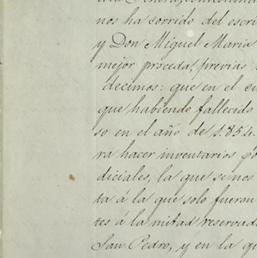 nos ha corrido del escri
y Don Miguel Maria
mejor proceda, previas
decimos: que en el
que habiendo fallecido
so en el año de 1.854.
ra hacer inventarios
diciales, la que se nos
ta á la que solo fueron
tes á la mitad reservad
San Pedro, y en la q